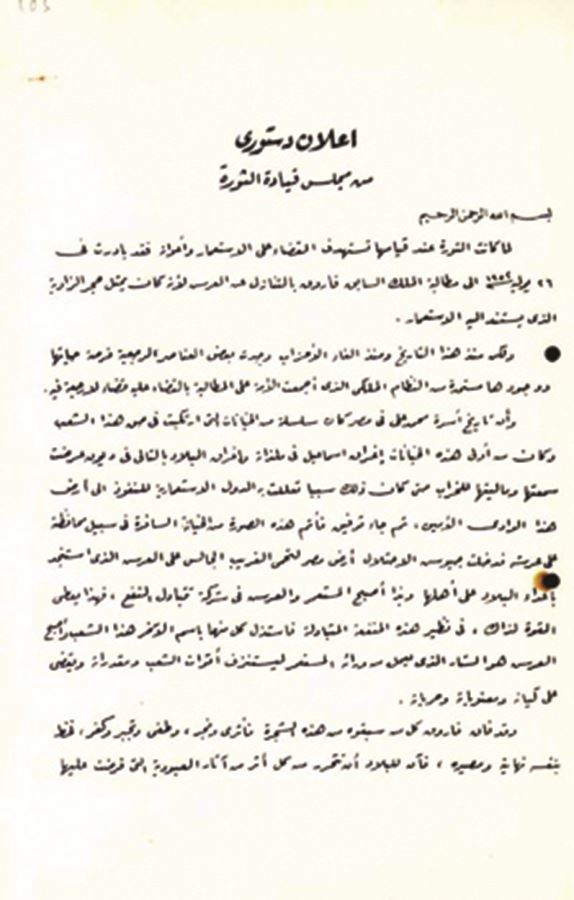 اعلان دستورى
من مجلس قيادة الثورة
بسم الله الرحمن الرحيم
لما كانت الثورة عند قيامها تستهدف القضاء على الاستعمار وأعوانه فقد بادرت فى
٢٦ يوليه ١٩٥٢ الى مطالبة الملك السابق فاروق بالتنازل عن العرش لأنه كان يمثل حجر الزاوية
الذى يستند اليه الاستعمار .
ولكن منذ هذا التاريخ ومنذ الغاء الأحزاب وجدت بعض العناصر الرجعية فرصة حياتها
ووجودها مستمدة من النظام الملكى الذى أجمعت الأمة على المطالبة بالقضاء عليه قضاء لا رجعة فيه .
وأن تاريخ أسرة محمد على فى مصر كان سلسلة من الخيانات التى ارتكبت فى حق هذا الشعب
وكان من أولى هذه الخيانات إغراق اسماعيل فى ملذاته وإغراق البلاد بالتالى فى ديون عرضت
سمعتها وماليتها للخراب حتى كان ذلك سببا تعللت به الدول الاستعمارية للنفوذ الى أرض
هذا الوادى الأمين ، ثم جاء توفيق فأتم هذه الصورة من الخيانة السافرة فى سبيل محافظة
على عرشه فدخلت جيوش الاحتلال أرض مصر لتحمى الغريب الجالس على العرش الذى استنجد
بأعداء البلاد على أهلها وبذا أصبح المستعمر والعرش فى شركة تتبادل النفع ، فهذا يعطى
القوة لذاك ، فى نظير هذه المنفعة المتبادلة فاستذل كل منهما باسم الآخر هذا الشعب وأصبح
العرش هو الستار الذى يعمل من ورائه المستعمر ليستنزف أقوات الشعب ومقدراته ويقضى
على كيانه ومعنوياته وحرياته .
وقد فاق فاروق كل من سبقوه من هذه الشجرة فأثرى وفجر ، وطغى وتجبر وكفر ، فخط
بنفسه نهايته ومصيره ، فآن للبلاد أن تتحرر من كل أثر من آثار العبودية التى فرضت عليها